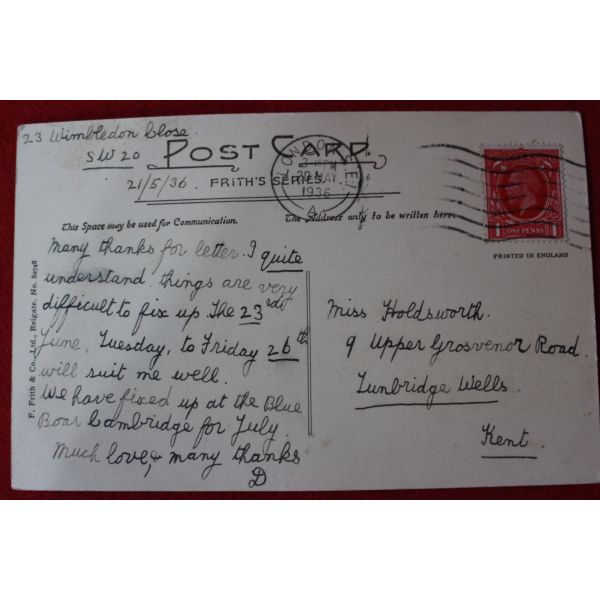 23 Wimbledon Close.
SW20
POST CARD.
21/5/36.
FRITH'S SERIES.
LONDON
PM
MAY
1936
A
ONE PENNY
PRINTED IN ENGLAND
This Space may be used for Communication.
The Address only to be written here.
F. Frith & Co., Ltd., Reigate. No.
Many thanks for letter. I quite
understand things are very
difficult to fix up. The 23rd
June, Tuesday, to Friday 26th
will suit me well.
We have fixed up at the Blue
Boar Cambridge for July.
Much love, & many thanks
D
Miss Holdsworth.
9 Upper Grosvenor Road.
Tunbridge Wells.
Kent.